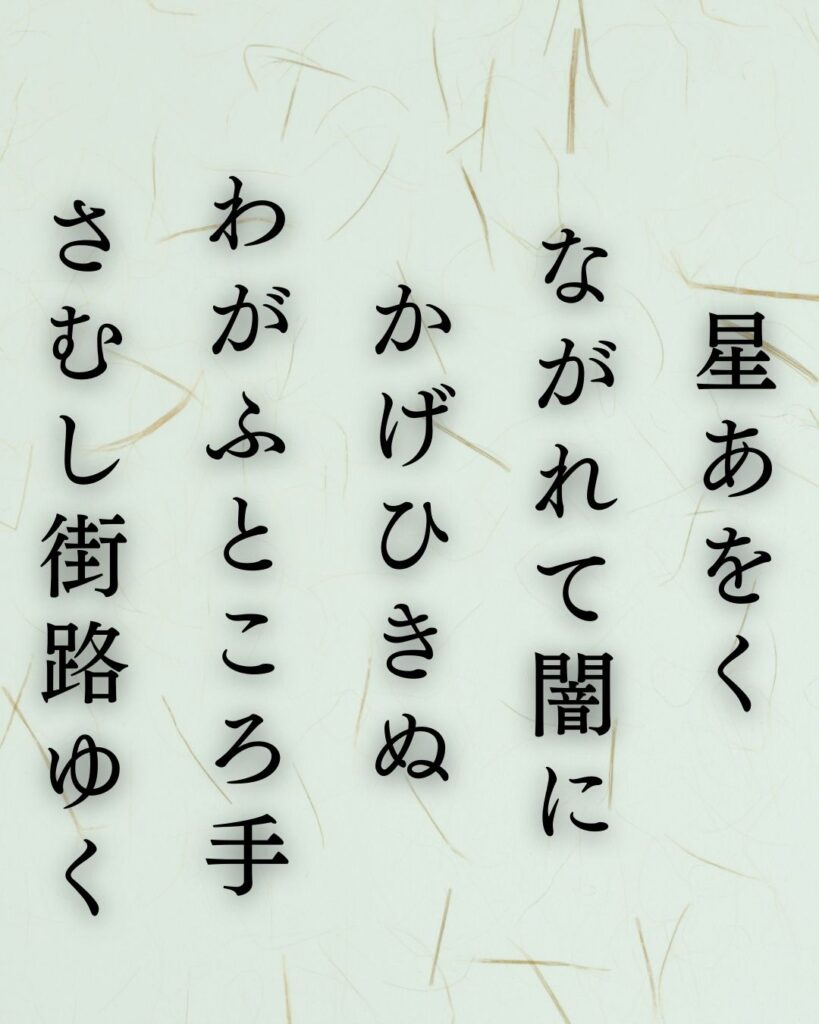 星あをく
ながれて闇に
かげひきぬ
わがふところ手
さむし街路ゆく